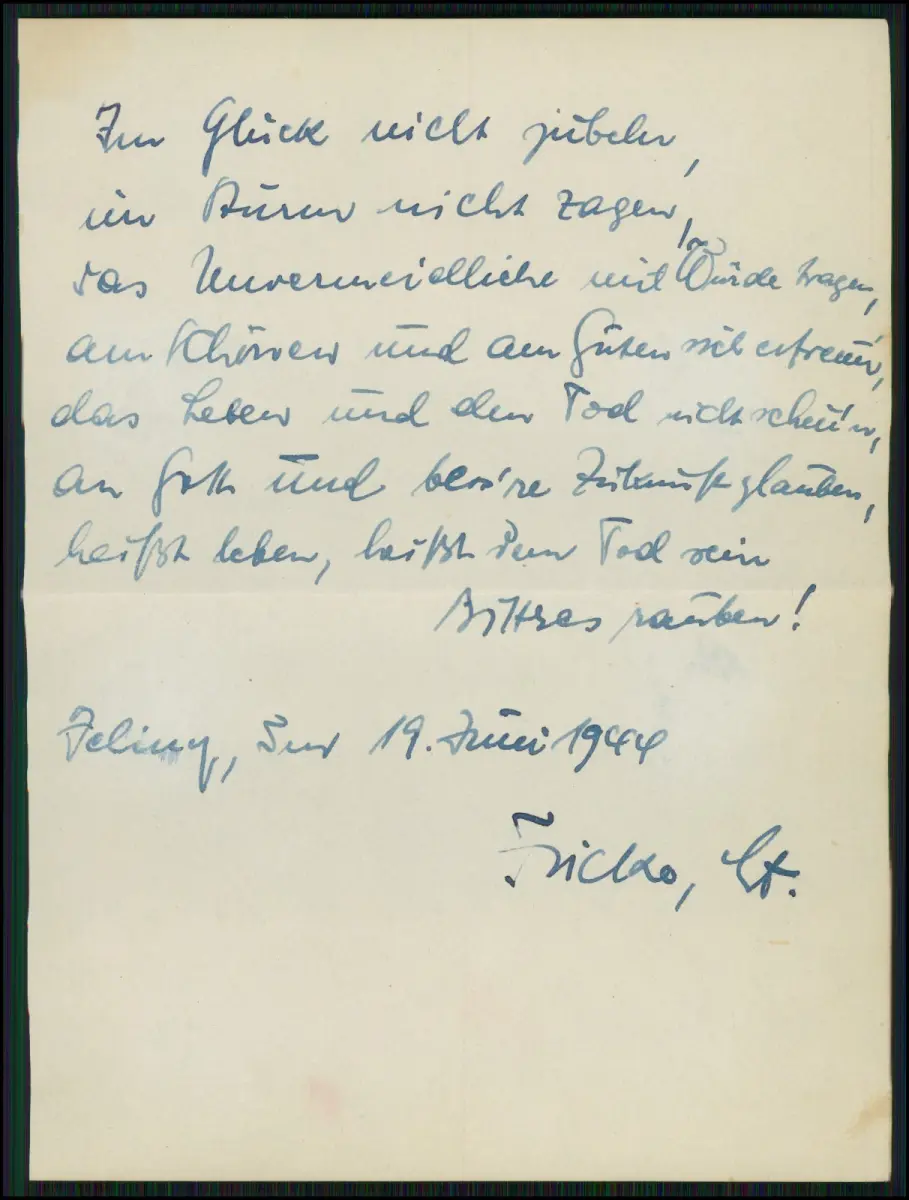 Im Glück nicht jubeln,
im Sturm nicht zagen,
das Unvermeidliche mit Würde tragen,
am Schönen und am Guten sich erfreun,
das Leben und den Tod nicht scheu'n,
an Gott und bess're Zukunft glauben,
heißt leben, heißt dem Tod sein
Bittres rauben!
den 19. Juni 1944
Fricke, Lt.